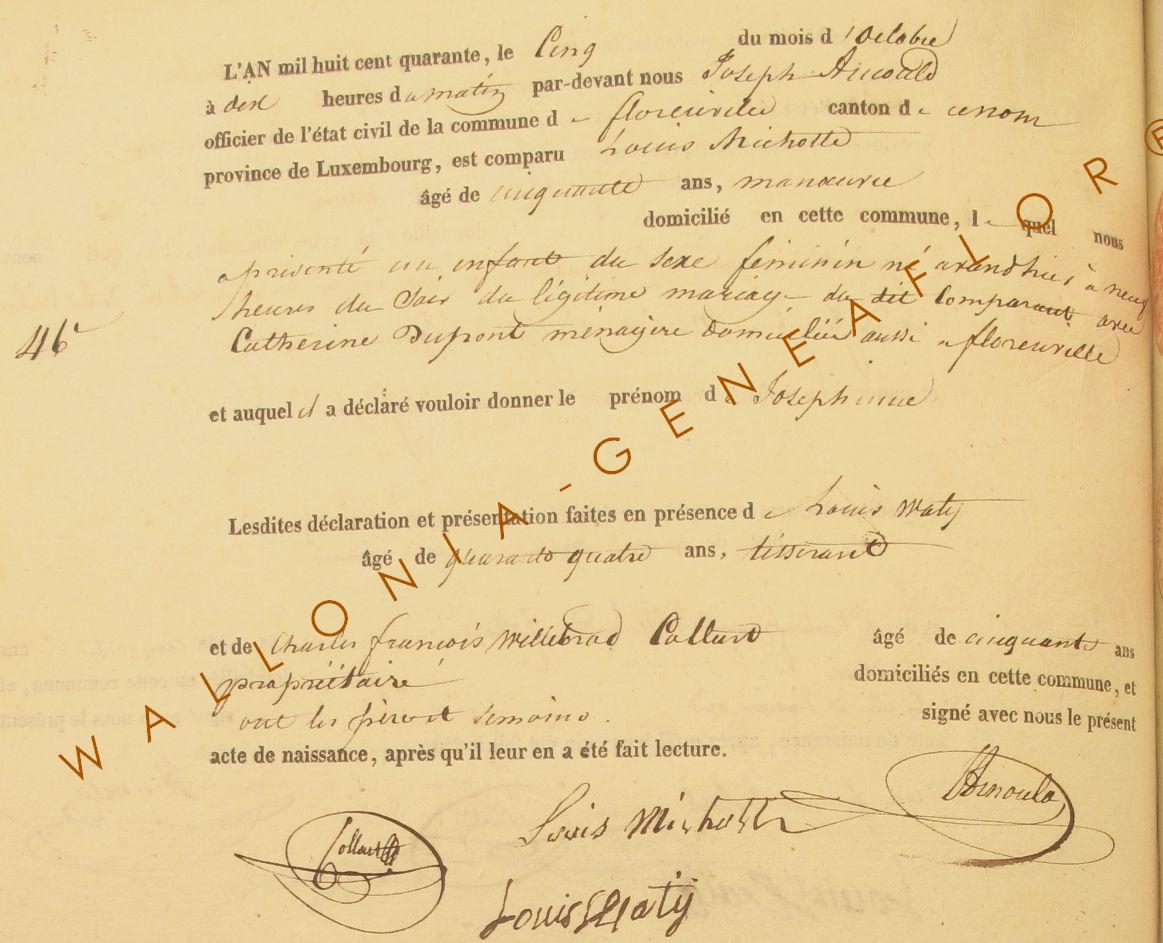 L'AN mil huit cent quarante, le Cinq du mois d'Octobre
à dix heures du matin par-devant nous Joseph Arnould
officier de l'état civil de la commune de florenville canton de
province de Luxembourg, est comparu Louis Michotte
âgé de cinquante ans, manœuvre
domicilié en cette commune, lequel nous
a présenté un enfant du sexe féminin né avanthier à neuf
heures du Soir du légitime mariage du dit Comparant avec
46e
Catherine Dupont ménagère domiciliée aussi a florenville
et auquel il a déclaré vouloir donner le prénom de Josephinne
Lesdites déclaration et présentation faites en présence de Louis Watij
âgé de quarante quatre ans, tisserand
et de Charles françois Willebrod Collart âgé de cinquante ans
propriétaire domiciliés en cette commune, et
ont les père et temoins. signé avec nous le présent
acte de naissance, après qu'il leur en a été fait lecture.
Collart Louis Michotte Arnould
Louis Watij
WALLONIA-GENEAFLOR®